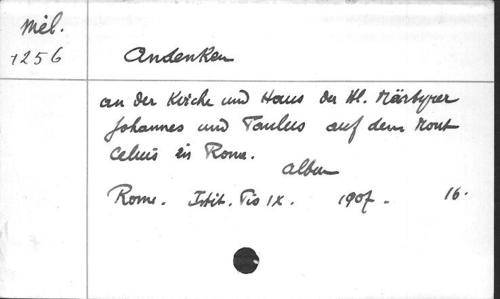 Mél.
1256
Andenken
an der Kirche und Haus der Hl. Märtyrer
Johannes und Paulus auf dem Mont
Celius in Rome.
Album
Rome. Istit. Pio IX. 1907. 16.